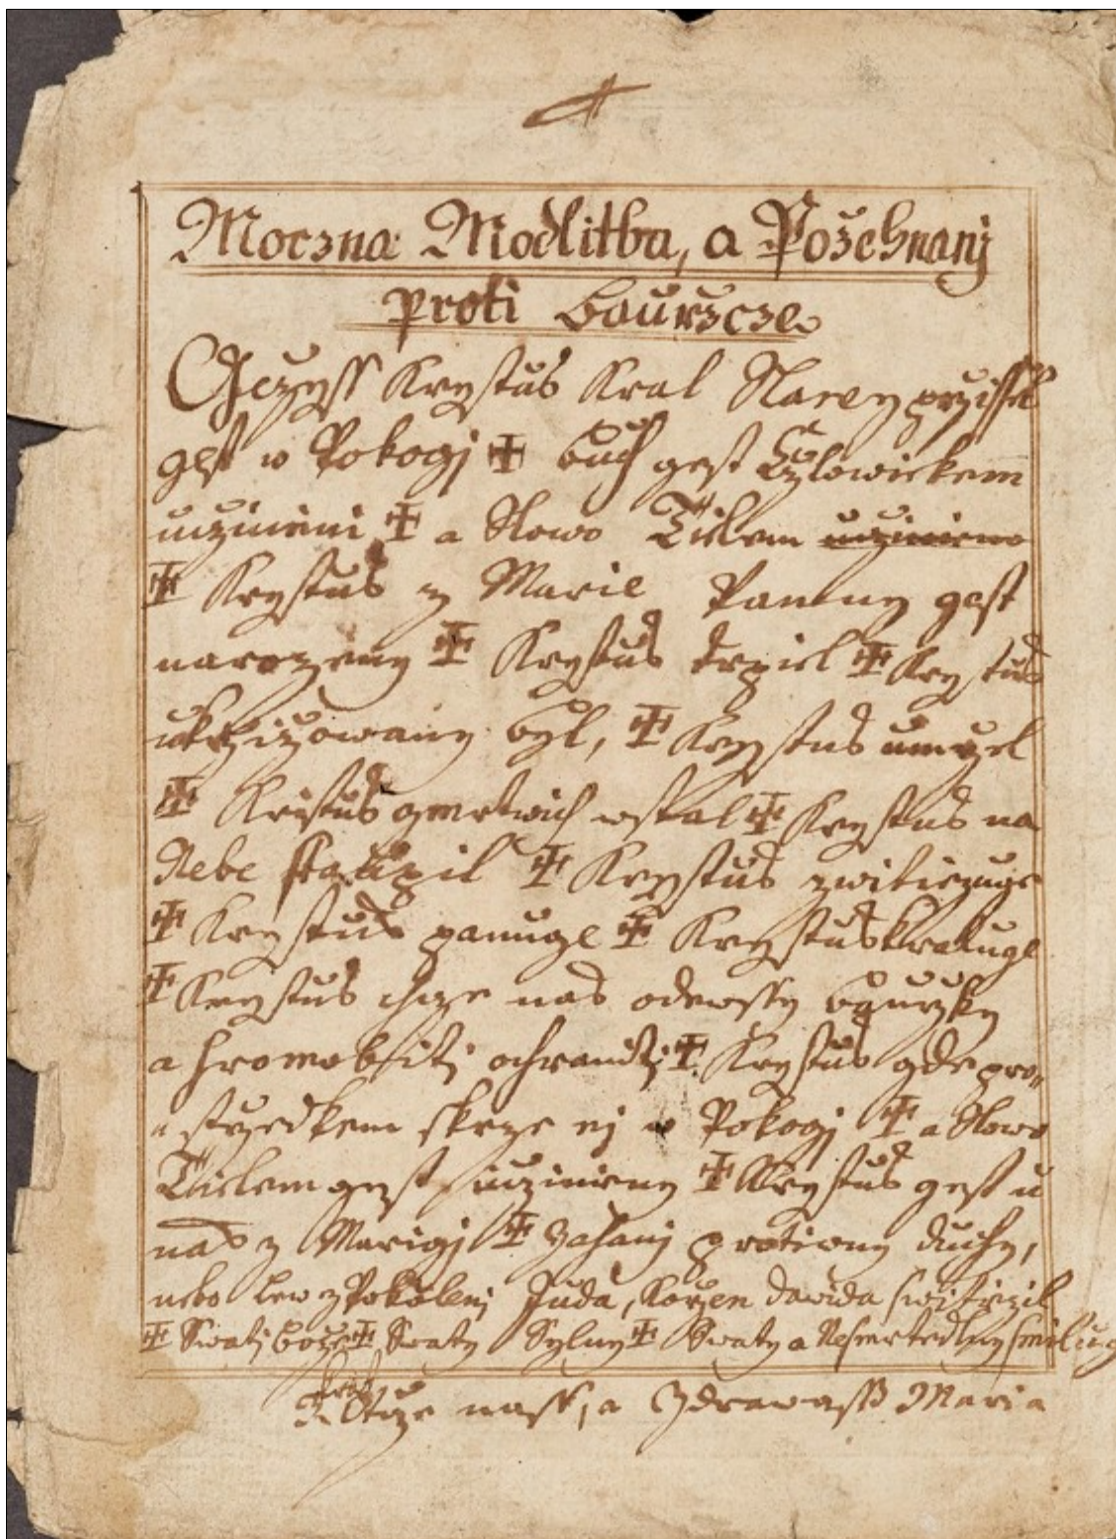 Moczna Modlitba, a Požehnanj
proti Bauržcze
Gezyss Krystus Kral Slawy przissel
gest w Pokogj ✠ Buch gest Czlowiekem
uczinieni ✠ a Slowo Tielem uczinieno
✠ Krystus z Marie Panny gest
narozeny ✠ Krystus trpiel ✠ Krystus
ukrzizowany byl, ✠ Krystus umrzel
✠ Kristus zmrtwich wstal ✠ Krystus na
Nebe staupil ✠ Krystus zwitiezuge
✠ Krystus panuge ✠ Krystus kraluge
✠ Krystus nas odewssy baurzky
a hromobiti ochraniti ✠ Krystus gde pro„
„strzedkem skrze ny w Pokogj ✠ a Slowo
Tielem gest uczinieny ✠ Krystus gest u
nas z Marigj ✠ Zahanj protiwny duchy,
nebo lew z Pokolenj Juda, Korzen dawida switiezil
✠ Swatj Boze ✠ Swaty Sylny ✠ Swaty a Nesmrtedlny smilug
Otcze nass, a Zdrawass Maria